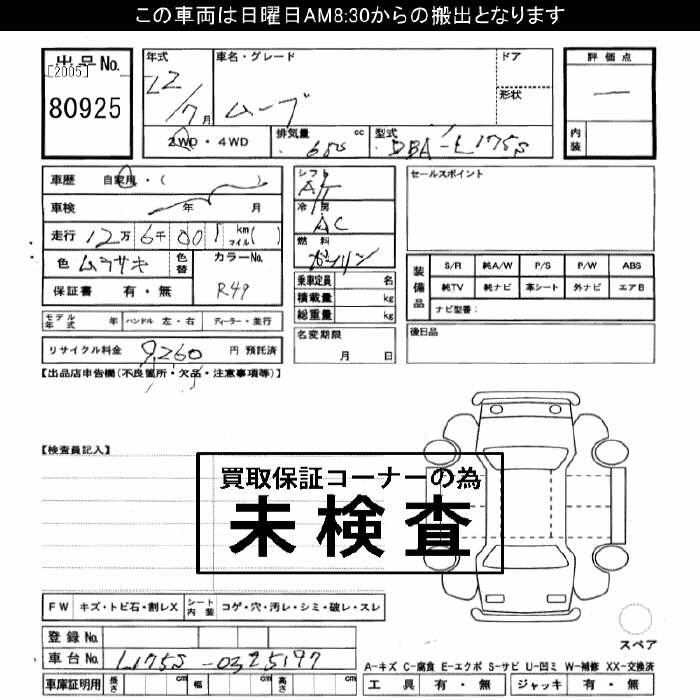 この車両は日曜日AM8:30からの搬出となります
出品No. [2005] 80925
年式 22/7月
車名・グレード ムーブ
ドア
形状
評価点 ー
内装
2WD・4WD
排気量 cc 650
型式 DBA-L175S
車歴 自家用・( )
車検 年 月
走行 12万6千001km マイル( )
色 ムラサキ 色替 カラーNo. R49
保証書 有・無
シフト AT
冷房 AC
燃料 ガソリン
乗車定員 名
積載量 kg
総重量 kg
セールスポイント
装備品 S/R 純A/W P/S P/W ABS
純TV 純ナビ 革シート 外ナビ エアB
ナビ型番:
モデル年式 年 ハンドル 左・右 ディーラー・並行
リサイクル料金 9,260 円 預託済
名変期限 月 日
後日品
【出品店申告欄(不良箇所・欠品・注意事項等)】
【検査員記入】
買取保証コーナーの為
未検査
FW キズ・トビ石・割レX シート内装 コゲ・穴・汚レ・シミ・破レ・スレ
登録No.
車台No. L175S-0325197
車庫証明用 長さ cm 幅 cm 高さ cm
スペア
A-キズ C-腐食 E-エクボ S-サビ U-凹ミ W-補修 XX-交換済
工具 有・無 ジャッキ 有・無